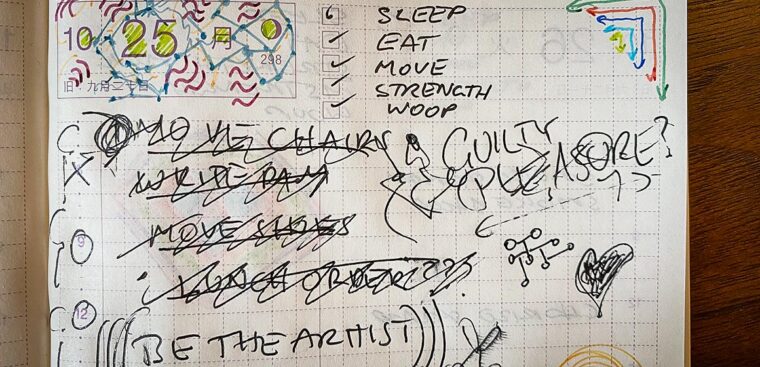 10 25 月
298
旧・九月二十日
SLEEP
EAT
MOVE
STRENGTH
WOOP
MOVE CHAIRS
GUILTY
PLEASORE?
MOVE SHOES
9
LUNCH ORDER??
12
(((BE THE ARTIST)))